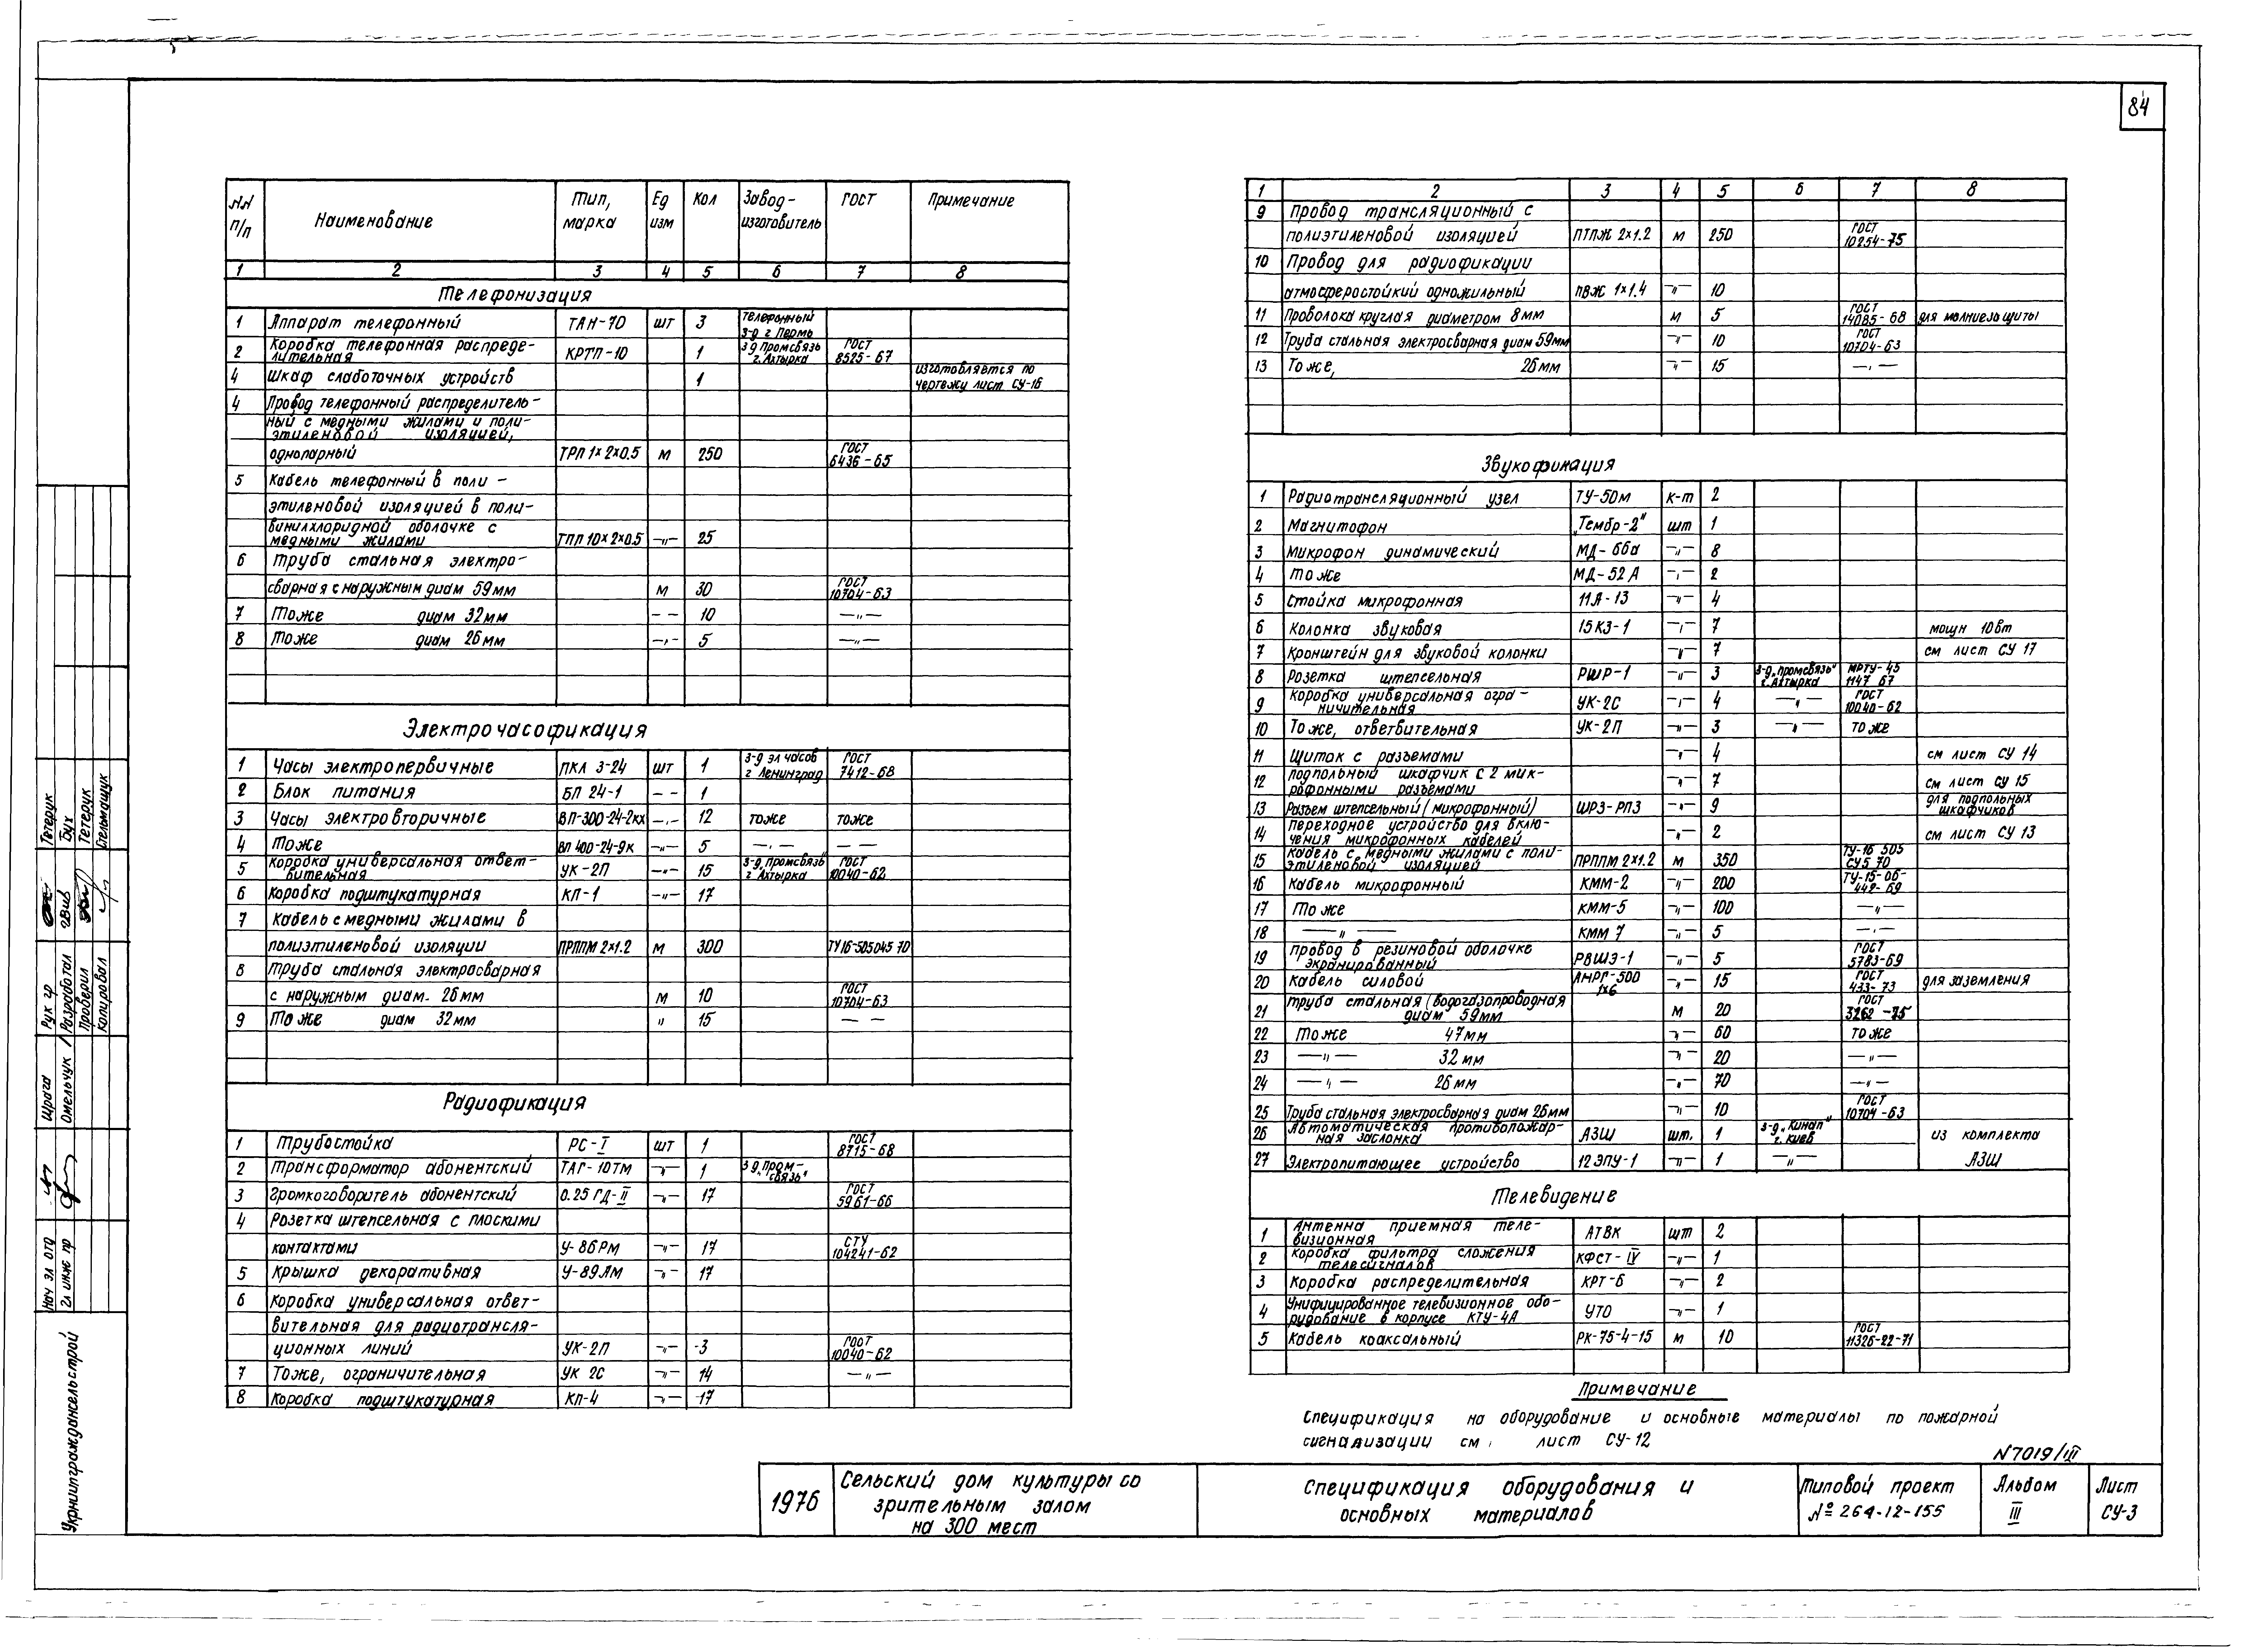 84
№№ п/п Наименование Тип, марка Ед изм Кол Завод-изготовитель ГОСТ Примечание
1 2 3 4 5 6 7 8
Телефонизация
1 Аппарат телефонный ТАН-70 шт 3 телефонный з-д г Пермь
2 Коробка телефонная распределительная КРТП-10 1 з-д Промсвязь г. Ахтырка ГОСТ 8525-67
4 Шкаф слаботочных устройств 1 изготовляется по чертежу лист СУ-16
4 Провод телефонный распределитель-
ный с медными жилами и поли-
этиленовой изоляцией,
однопарный ТРП 1×2×0.5 м 250 ГОСТ 6436-65
5 Кабель телефонный в поли-
этиленовой изоляцией в поли-
винилхлоридной оболочке с
медными жилами ТПП 10×2×0.5 —"— 25
6 Труба стальная электро-
сварная с наружным диам 59мм м 30 ГОСТ 10704-63
7 Тоже диам 32мм — — 10 —"—
8 Тоже диам 26мм —"— 5 —"—
Электрочасофикация
1 Часы электропервичные ПКЛ 3-24 шт 1 з-д эл часов г Ленинград ГОСТ 7412-68
2 Блок питания БП 24-1 — — 1
3 Часы электровторичные ВП-300-24-2кх —"— 12 тоже тоже
4 Тоже ВП 400-24-9к —"— 5 —"— — —
5 Коробка универсальная ответ-
вительная УК-2П —"— 15 з-д„Промсвязь" г Ахтырка ГОСТ 10040-62
6 Коробка подштукатурная КП-1 —"— 17
7 Кабель с медными жилами в
полиэтиленовой изоляции ПРППМ 2×1.2 м 300 ТУ16-505045 70
8 Труба стальная электросварная
с наружным диам. 26мм м 10 ГОСТ 10704-63
9 Тоже диам 32мм " 15 — —
Радиофикация
1 Трубостойка РС-I шт 1 ГОСТ 8715-68
2 Трансформатор абонентский ТАГ-10ТМ —"— 1 з-д„Пром-связь"
3 Громкоговоритель абонентский 0.25 ГД-II —"— 17 ГОСТ 5961-66
4 Розетка штепсельная с плоскими
контактами У-86РМ —"— 17 СТУ 104241-62
5 Крышка декоративная У-89ЛМ —"— 17
6 Коробка универсальная ответ-
вительная для радиотрансля-
ционных линий УК-2П —"— 3 ГОСТ 10040-62
7 Тоже, ограничительная УК 2С —"— 14 —"—
8 Коробка подштукатурная КП-4 —"— 17
1 2 3 4 5 6 7 8
9 Провод трансляционный с
полиэтиленовой изоляцией ПТПЖ 2×1.2 м 250 ГОСТ 10254-75
10 Провод для радиофикации
атмосферостойкий одножильный ПВЖ 1×1.4 —"— 10
11 Проволока круглая диаметром 8мм м 5 ГОСТ 14085-68 для молниезащиты
12 Труба стальная электросварная диам 59мм —"— 10 ГОСТ 10704-63
13 Тоже, 26мм —"— 15 —"—
Звукофикация
1 Радиотрансляционный узел ТУ-50м к-т 2
2 Магнитофон „Тембр-2" шт 1
3 Микрофон динамический МД-66а —"— 8
4 Тоже МД-52А —"— 2
5 Стойка микрофонная 11Я-13 —"— 4
6 Колонка звуковая 15КЗ-1 —"— 7 мощн 10вт
7 Кронштейн для звуковой колонки —"— 7 см лист СУ 17
8 Розетка штепсельная РШР-1 —"— 3 з-д„Промсвязь" г. Ахтырка МРТУ-45 1147 67
9 Коробка универсальная огра-
ничительная УК-2С —"— 4 —"— ГОСТ 10040-62
10 Тоже, ответвительная УК-2П —"— 3 —"— тоже
11 Щиток с разъемами —"— 4 см лист СУ 14
12 Подпольный шкафчик с 2 мик-
рофонными разъемами —"— 7 см лист СУ 15
13 Разъем штепсельный (микрофонный) ШР3-РП3 —"— 9 для подпольных шкафчиков
14 Переходное устройство для вклю-
чения микрофонных кабелей —"— 2 см лист СУ 13
15 Кабель с медными жилами с поли-
этиленовой изоляцией ПРППМ 2×1.2 м 350 ТУ-16 505 СУ5 70
16 Кабель микрофонный КММ-2 —"— 200 ТУ-15-06-449-69
17 Тоже КММ-5 —"— 100 —"—
18 —"— КММ 7 —"— 5 —"—
19 Провод в резиновой оболочке
экранированный РВШЭ-1 —"— 5 ГОСТ 5783-69
20 Кабель силовой АНРГ-500 1×6 —"— 15 ГОСТ 433-73 для заземления
21 Труба стальная (водогазопроводная
диам 59мм м 20 ГОСТ 3262-75
22 Тоже 47мм —"— 60 тоже
23 —"— 32мм —"— 20 —"—
24 —"— 26мм —"— 70 —"—
25 Труба стальная электросварная диам 26мм —"— 10 ГОСТ 10704-63
26 Автоматическая противопожар-
ная заслонка АЗШ шт. 1 з-д„Кинап" г. Киев из комплекта
27 Электропитающее устройство 12ЭПУ-1 —"— 1 —"— АЗШ
Телевидение
1 Антенна приемная теле-
визионная АТВК шт 2
2 Коробка фильтра сложения
телесигналов КФСТ-IV —"— 1
3 Коробка распределительная КРТ-6 —"— 2
4 Унифицированное телевизионное обо-
рудование в корпусе КТУ-4А УТО —"— 1
5 Кабель коаксальный РК-75-4-15 м 10 ГОСТ 11326-22-71
Примечание
Спецификация на оборудование и основные материалы по пожарной
сигнализации см. лист СУ-12
N7019/III
1976
Сельский дом культуры со
зрительным залом
на 300 мест
Спецификация оборудования и
основных материалов
Типовой проект
№ 264-12-155
Альбом
III
Лист
СУ-3
Укрниипграждансельстрой
Нач эл отд Шрага
Гл инж пр Омельчук
Рук гр Тетерук
Разработал Бух
Проверил Тетерук
Копировал Стельмащук